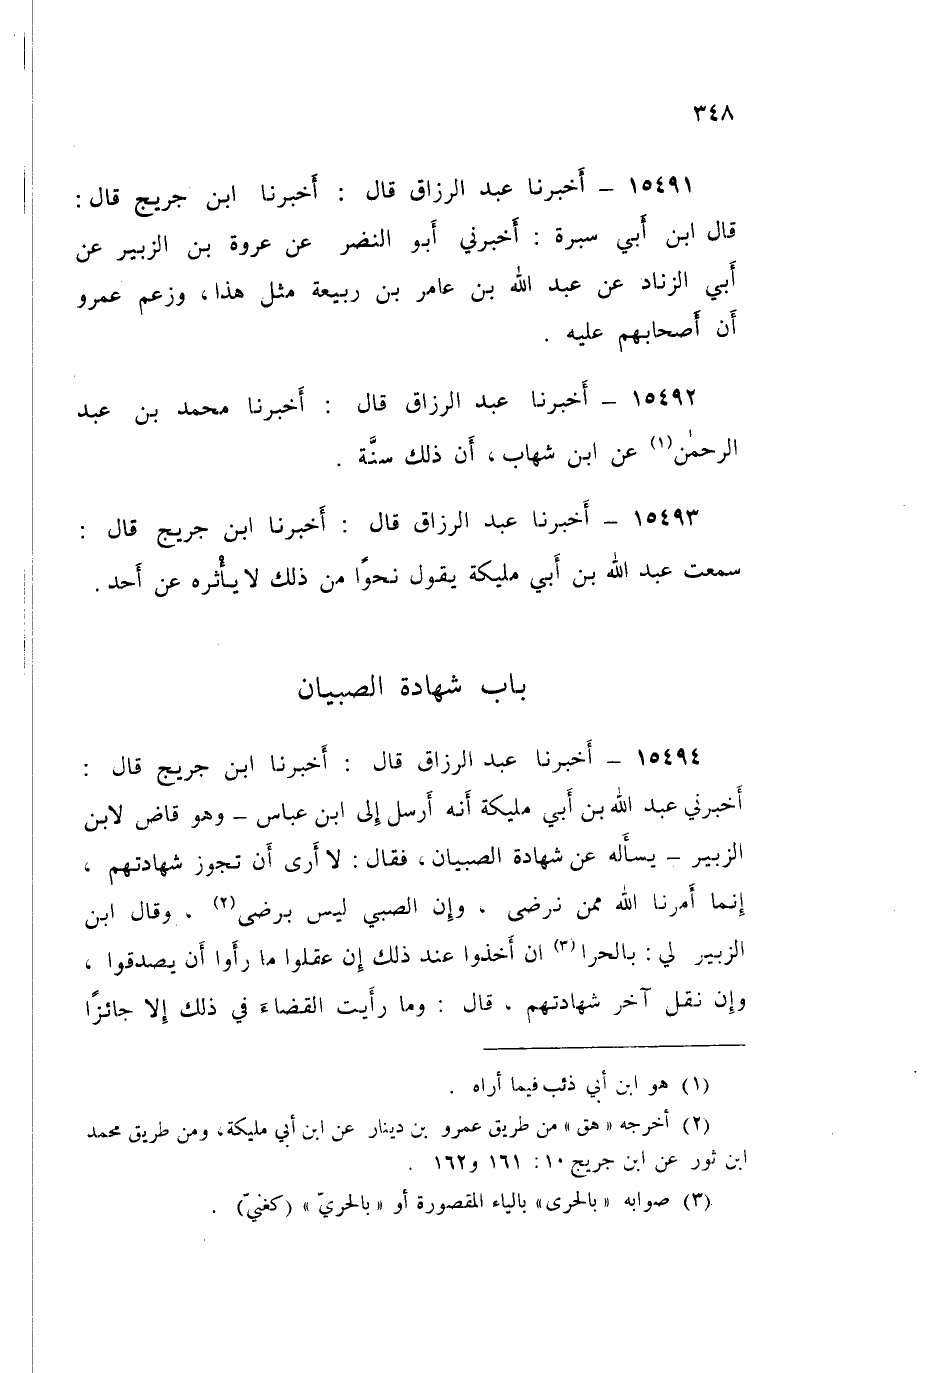 ٣٤٨
١٥٤٩١ – أَخبرنا عبد الرزاق قال : أَخبرنا ابن جريج قال :
قال ابن أَبي سبرة : أَخبرني أَبو النضر عن عروة بن الزبير عن
أَبي الزناد عن عبد الله بن عامر بن ربيعة مثل هذا ، وزعم عمرو
أَن أَصحابهم عليه .
١٥٤٩٢ – أَخبرنا عبد الرزاق قال : أَخبرنا محمد بن عبد
الرحمٰن(١) عن ابن شهاب ، أَن ذلك سنَّة .
١٥٤٩٣ – أَخبرنا عبد الرزاق قال : أَخبرنا ابن جريج قال :
سمعت عبد الله بن أَبي مليكة يقول نحوًا من ذلك لا يأْثره عن أَحد .
باب شهادة الصبيان
١٥٤٩٤ – أَخبرنا عبد الرزاق قال : أَخبرنا ابن جريج قال :
أَخبرني عبد الله بن أَبي مليكة أَنه أَرسل إِلى ابن عباس – وهو قاض لابن
الزبير – يسأَله عن شهادة الصبيان ، فقال : لا أَرى أَن تجوز شهادتهم ،
إِنما أَمرنا الله ممن نرضى ، وإِن الصبي ليس برضى(٢) ، وقال ابن
الزبير لي : بالحرا(٣) ان أَخذوا عند ذلك إِن عقلوا ما رأَوا أَن يصدقوا ،
وإِن نقل آخر شهادتهم . قال : وما رأَيت القضاءَ في ذلك إِلا جائزًا
(١) هو ابن أبي ذئب فيما أراه .
(٢) أخرجه « هق » من طريق عمرو بن دينار عن ابن أبي مليكة ، ومن طريق محمد
ابن ثور عن ابن جريج ١٠ : ١٦١ و١٦٢ .
(٣) صوابه « بالحرى » بالياء المقصورة أو « بالحريّ » (كغنيّ) .